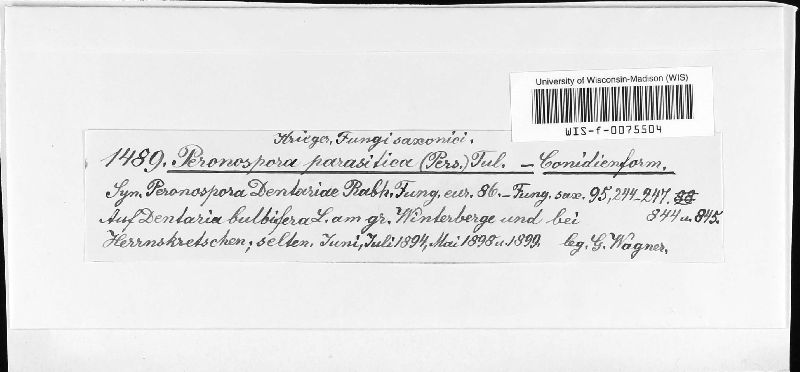 University of Wisconsin-Madison (WIS)
WIS-f-0075504
Krieger, Fungi saxonici.
1489. Peronospora parasitica (Pers.) Tul. – Conidienform.
Syn. Peronospora Dentariae Rabh. Fung. eur. 86. – Fung. sax. 95, 244-247.
844 u. 845.
Auf Dentaria bulbifera L. am gr. Winterberge und bei
Herrnskretschen; selten. Juni, Juli 1894, Mai 1898 u. 1899. lg. G. Wagner.